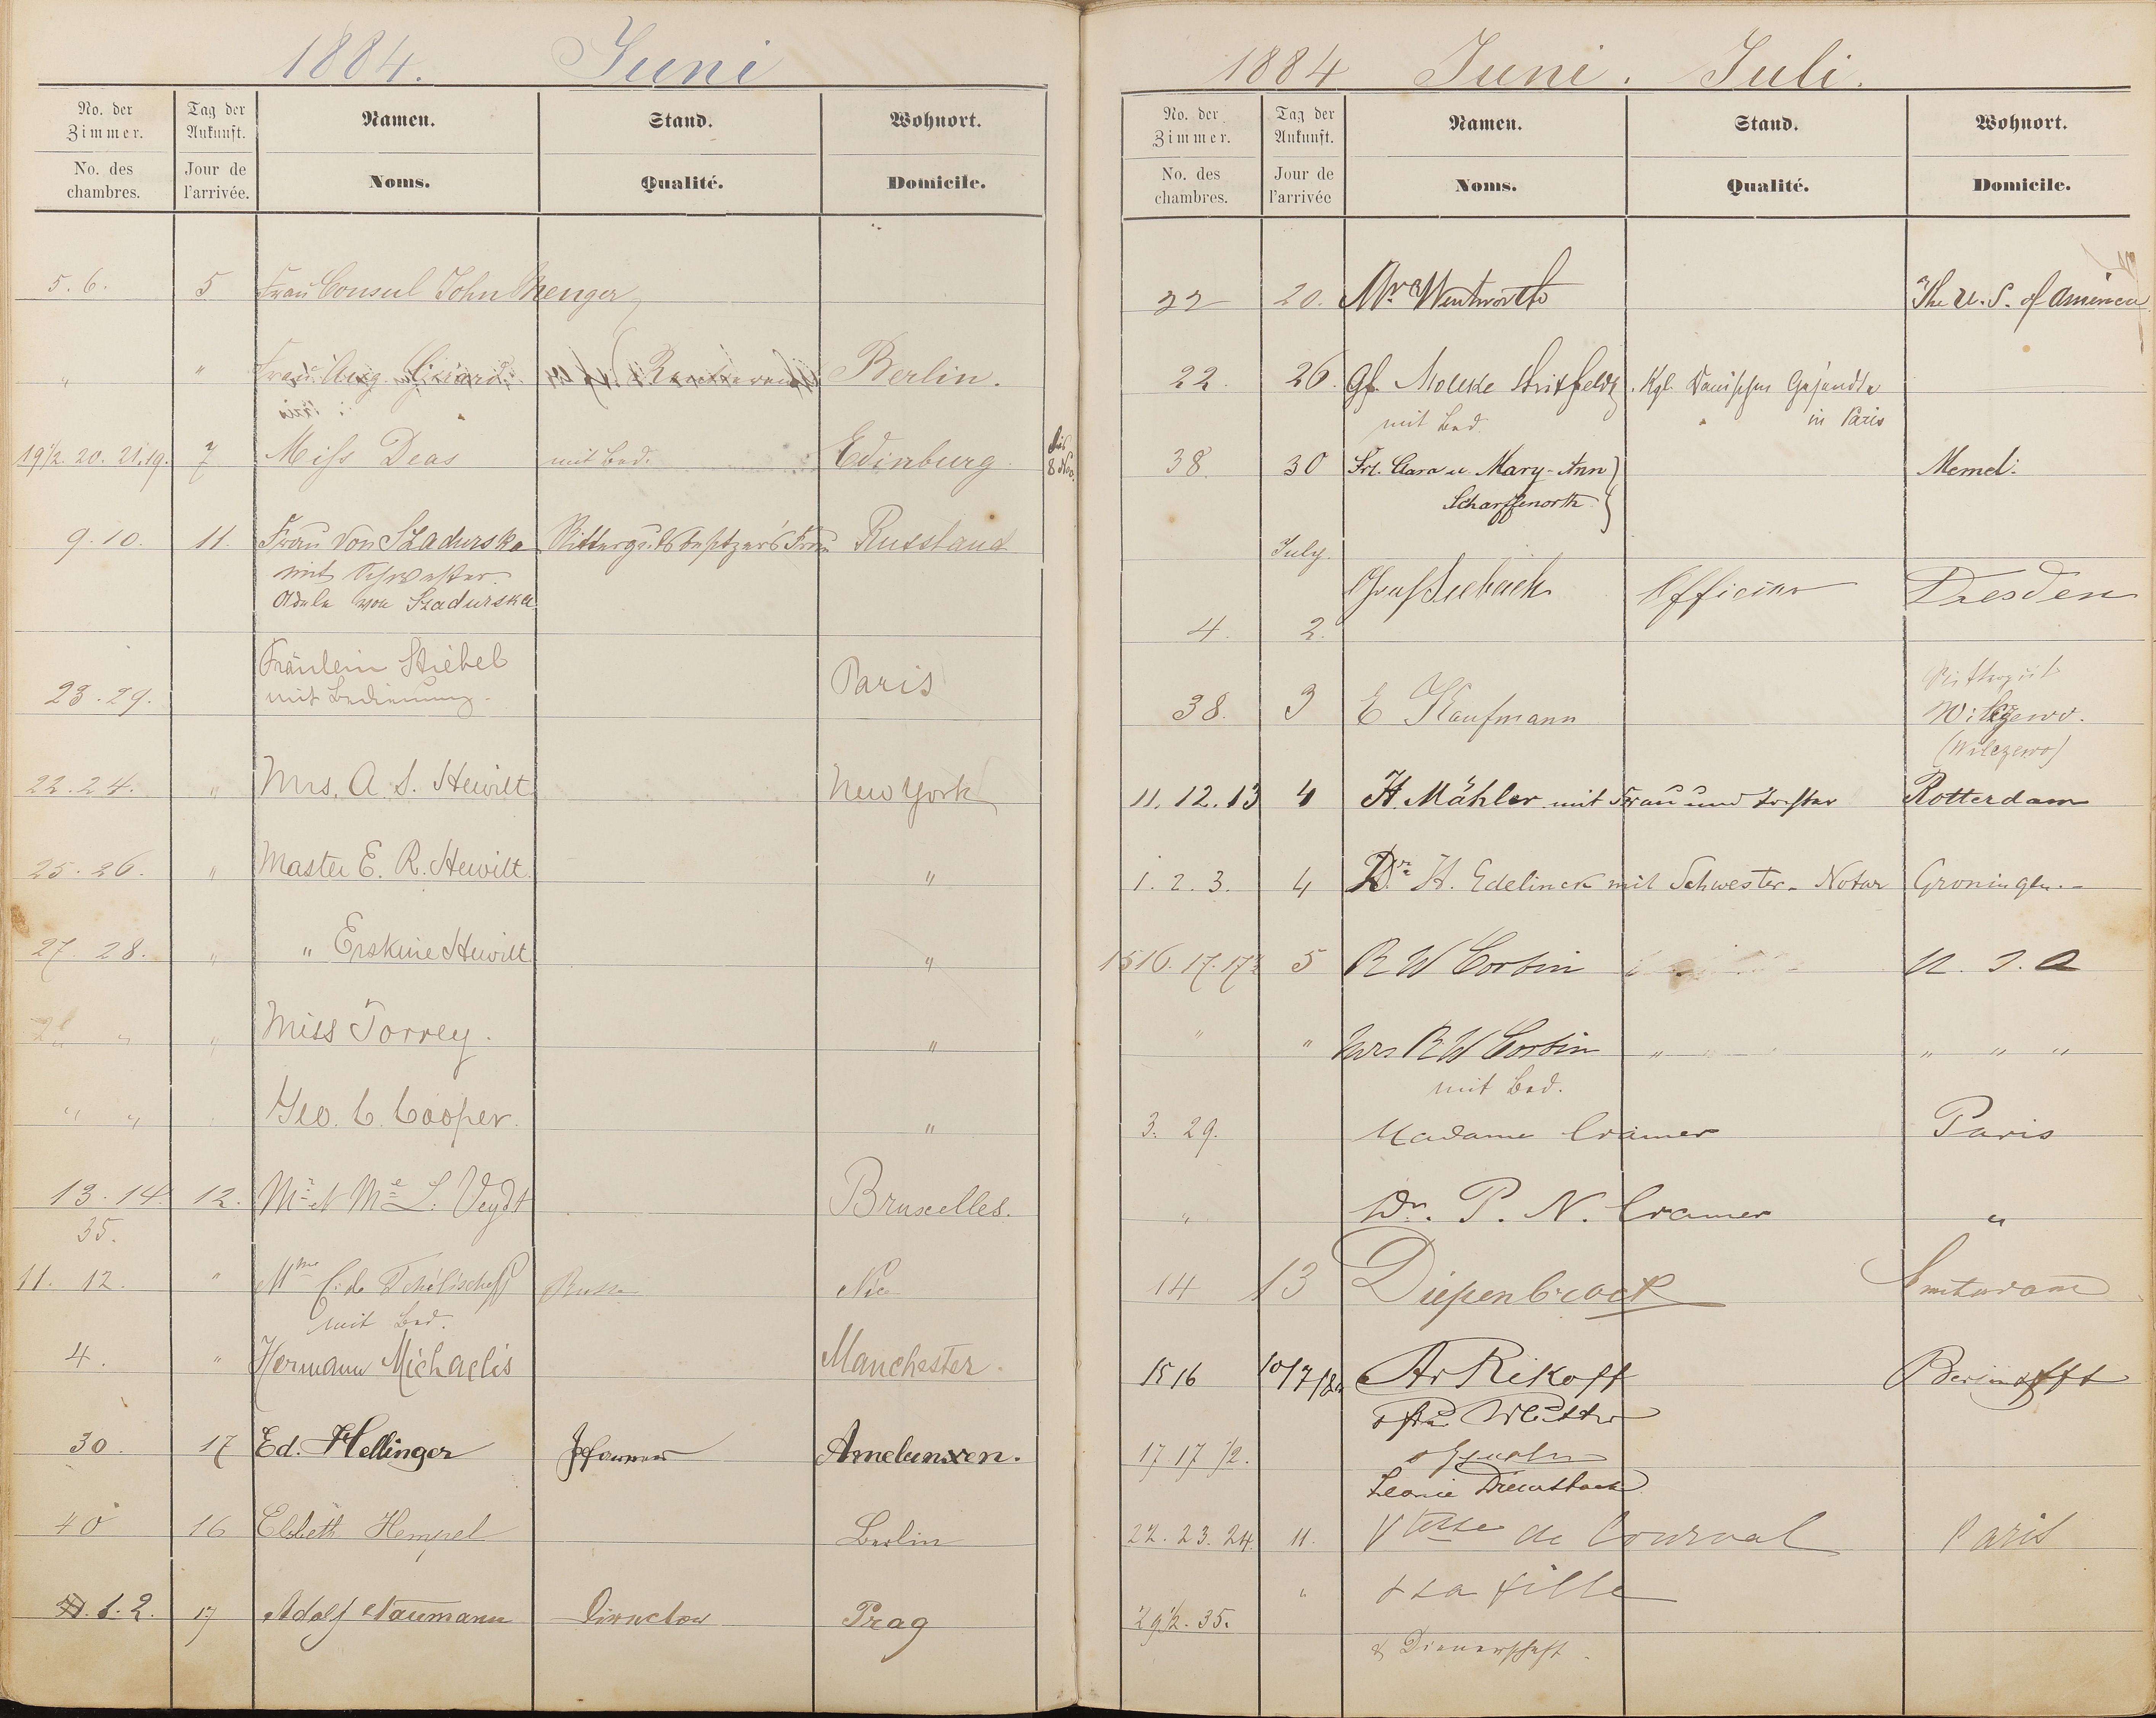 1884. Juni
No. der Zimmer. Tag der Ankunft. Namen. Stand. Wohnort.
No. des chambres. Jour de l'arrivée. Noms. Qualité. Domicile.
5. 6. 5 Frau Consul John
" " Frau Aug. Berlin.
19½. 20. 21. 19. 7 Miss Deas mit Bed. Edinburg.
9. 10. 11. Frau von Szadurska Rittergutsbesitzer's Frau Russland
mit Schwester.
Adele von Szadurska
Fräulein Stiebel
23. 29. mit Bedienung. Paris
22. 24. " Mrs. A. S. Hewitt New York
25. 26. " Master E. R. Hewitt "
27. 28. " " Erskine Hewitt "
" " Miss Torrey. "
" " Geo. C. Cooper. "
13. 14. 12. Mr et Me L. Veydt Bruxelles.
35.
11. 12. " Mme de Nice
mit Bed.
4. " Hermann Michaelis Manchester.
30. 17 Ed. Hellinger Amelunxen.
40 16 Elsbeth Hempel Berlin
1. 2. 17 Adolf Naumann Director Prag
1884 Juni. Juli.
No. der Zimmer. Tag der Ankunft. Namen. Stand. Wohnort.
No. des chambres. Jour de l'arrivée Noms. Qualité. Domicile.
22 20. Wentworth The U. S. of America
22. 26. Gf. Moltke Hvitfeldt. Kgl. Dänischer Gesandter
mit Bed. in Paris
38. 30 Frl. Clara u. Mary-Ann Memel.
Scharffenorth
July.
Graf Seebach Officier Dresden
4. 2.
Rittergut
38. 3 E Kaufmann
(Wilczewo)
11. 12. 13 4 H. Mähler mit Frau und Tochter Rotterdam
1. 2. 3. 4 Dr. H. Edelinck mit Schwester - Notar Groningen.
15 16. 17. 17½ 5 R W Corbin U. S. A
" " Mrs R W Corbin " " " "
mit Bed.
3. 29. Madame Cramer Paris
" Dr. P. N. Cramer "
14 13 Diepenbrock
15 16 10/7/84
17 17 ½.
Leonie
22. 23. 24. 11. Vtesse de Courval Paris
" & sa fille
29½. 35.
& Dienerschaft.